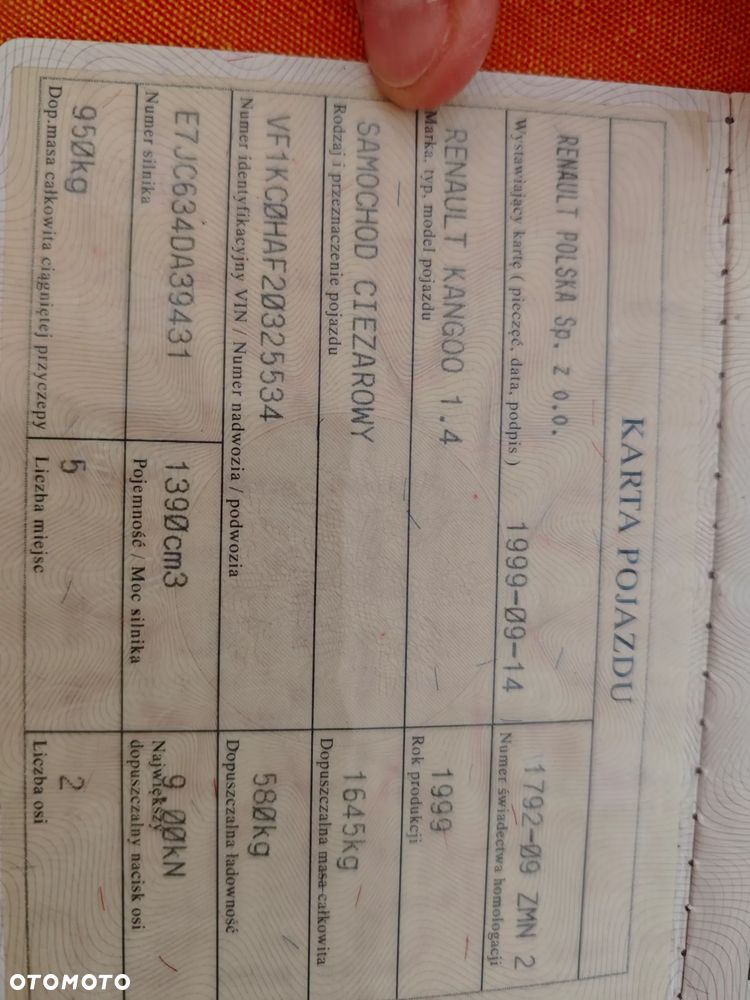 KARTA POJAZDU
RENAULT POLSKA Sp. Z o.o.
1999-09-14
Wystawiający kartę ( pieczęć, data, podpis )
1792-09 ZMN 2
Numer świadectwa homologacji
RENAULT KANGOO 1.4
Marka, typ, model pojazdu
1999
Rok produkcji
SAMOCHOD CIEZAROWY
Rodzaj i przeznaczenie pojazdu
1645kg
Dopuszczalna masa całkowita
VF1KC0HAF20325534
Numer identyfikacyjny VIN / Numer nadwozia / podwozia
580kg
Dopuszczalna ładowność
E7JC634DA39431
Numer silnika
1390cm3
Pojemność / Moc silnika
9.00kN
Największy
dopuszczalny nacisk osi
950kg
Dop.masa całkowita ciągniętej przyczepy
5
Liczba miejsc
2
Liczba osi
OTOMOTO